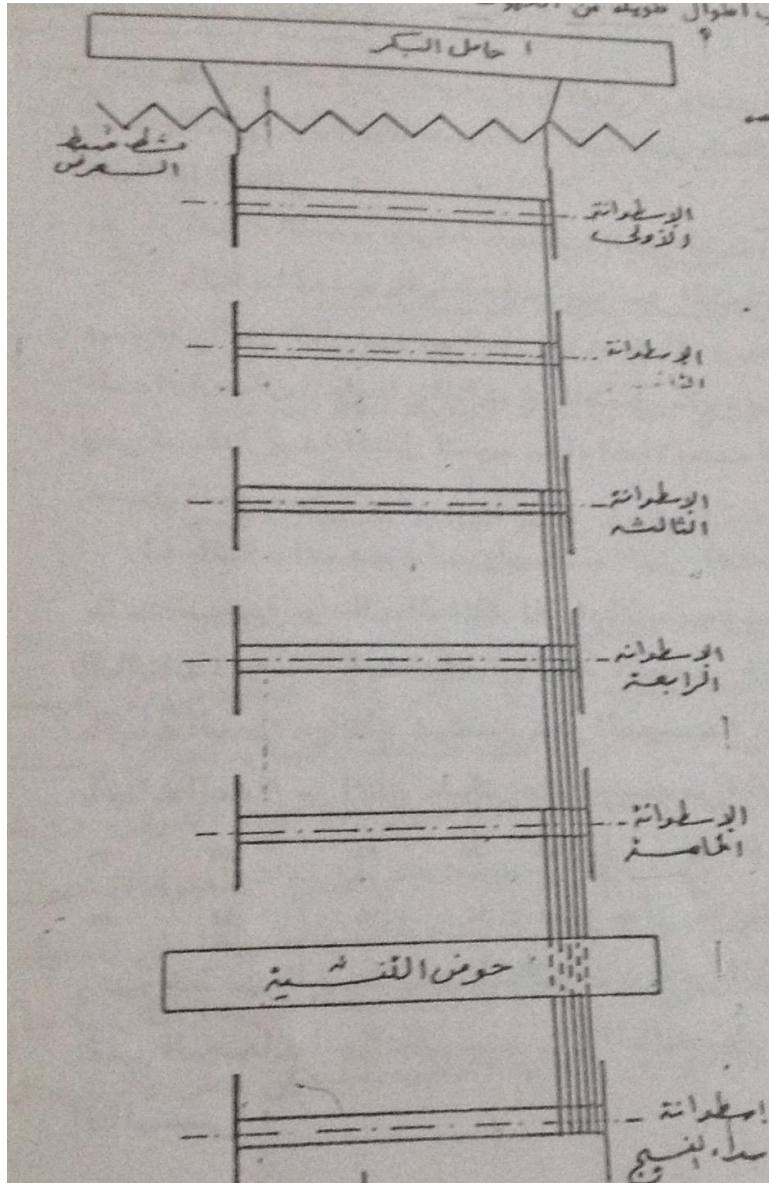 طويلة من
حامل البكر
مشط ضبط
العرض
الاسطوانة
الأولى
الاسطوانة
الاسطوانة
الثالثه
الاسطوانه
الرابعة
الاسطوانة
الخامسة
حوض التنشية
إسطوانة
سداء النسيج